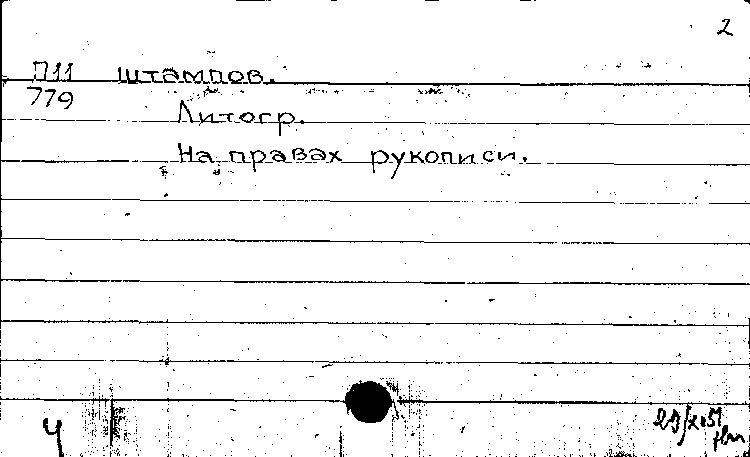 2
П11 штампов.
779
Литогр.
На правах рукописи.
Ч